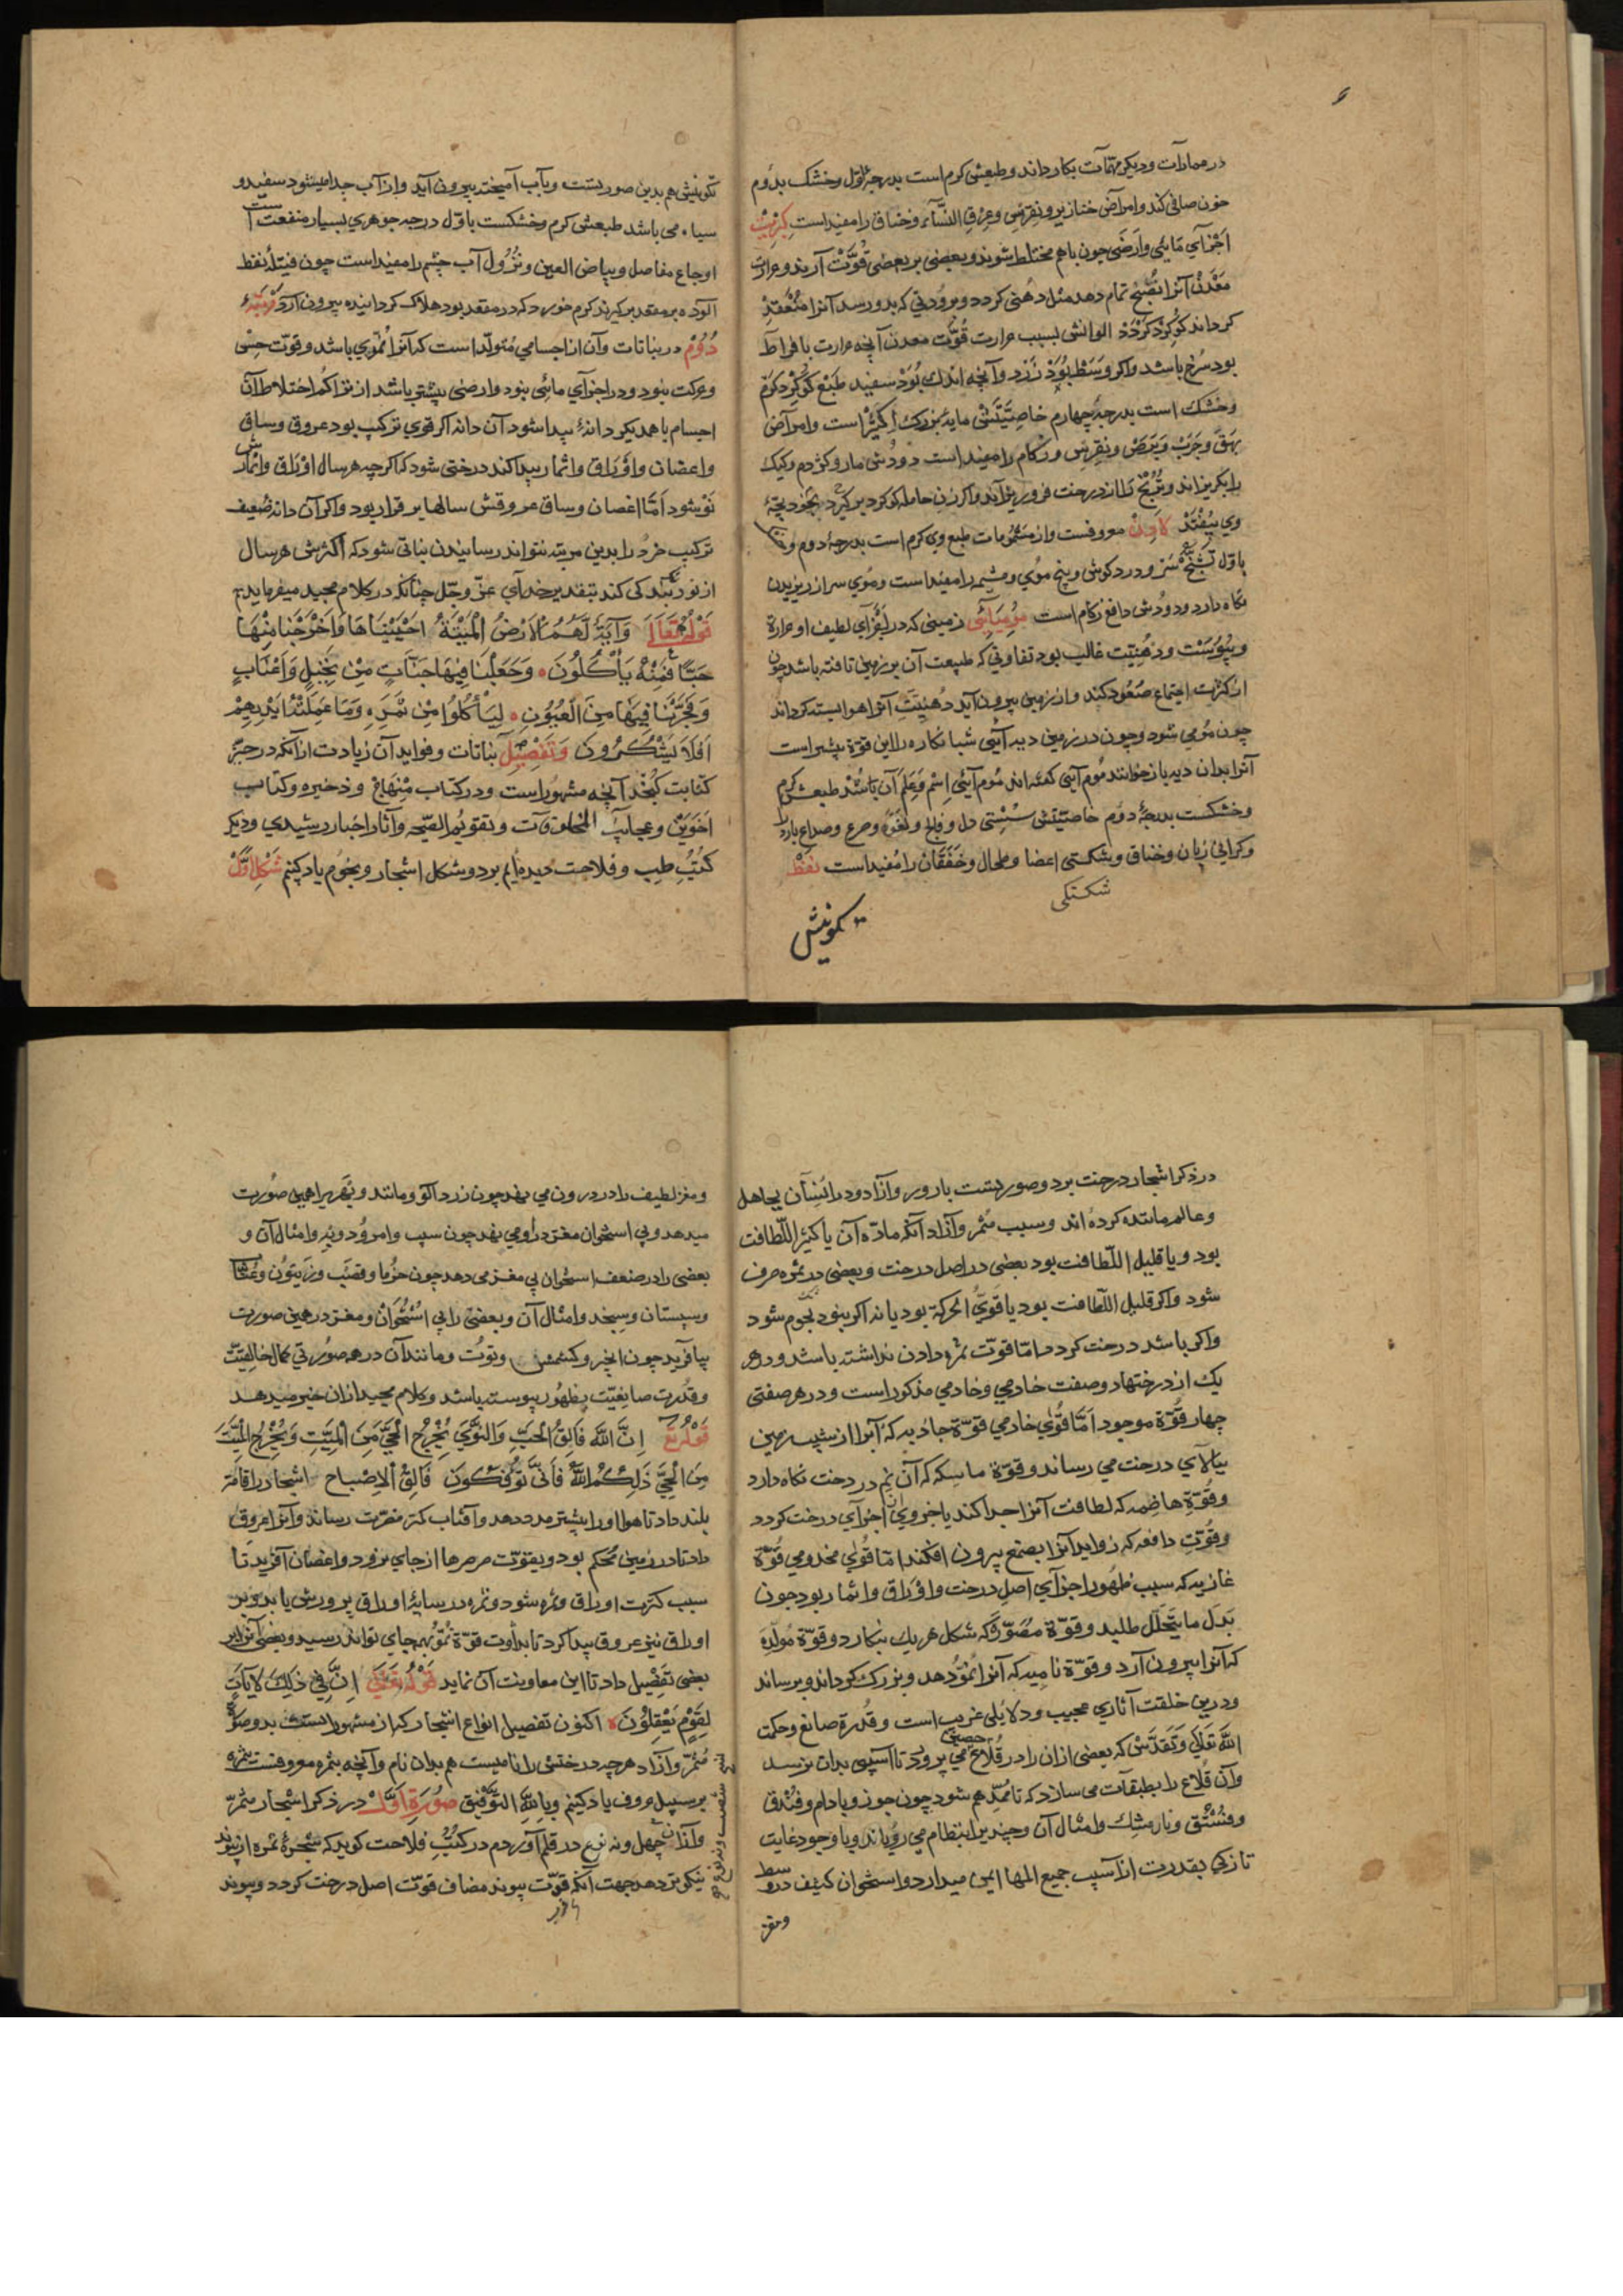 در عمارات و دیکر مهمّات بکار داند و طبعش کرم است بدرجهٔ اوّل و خشک بدوم
خون صافی کند و امراض خنازیر و نقرس و عِرق النَّسآء و خناق را مفید است کبریت
اَجزآیِ مَایی وَارضَی چون باهم مختلط شوند و بعضی بر بعضی قُوَّتْ آرند و حرارت
مَعْدَنْ آنرا نُضْج تمام دهد مثل دُهنی کردد و برودتی که بدو رسد آنرا مُنْعَقِدْ
کرداند کُوکِرْدْ کَرْدَدْ الوانش بسبب حرارت قُوَّت معدن آنچه حرارت بافراط
بود سُرخ باشد و اکر وَسَطْ بُوَدْ زَرْد و آنچه اندک بُوَدْ سفید طَبْع کُوکِرْد کَرم
و خشک است بدرجهٔ چهارم خاصِیَّتَش مایهٔ بزرک اِکْسیرْ است و امراض
بَهَق وَجَرَبْ وَبَرَصْ و نِقرِس و زکام را مفید است دودش مار و کژدم و کیک
را بکریزاند و تُرُنْج را از درخت فرو ریزاند و اکر زن حامله کوکرد برکیرد بخود بچهٔ
وی بِیُفْتَدْ لادِنْ معروفست و از مَشمُومات طبع وی کرم است بدرجهٔ دوم و
باوّل تَشَنُّج سَر و درد کوش و بیخ موی و مشیمه را مفید است و مُوی سر از ریزیدن
نکاه دارد و دُودش دافع زکام است مُومِیَائی زمینی که در اَجْزآی لطیف او حرارة
و یُبُوسَتْ و دُهْنِیَّت غالب بود تفاوتی که طبیعت آن بر زمین تافته باشد چون
از کثرت اجتماع صَعُود کند و از زمین بیرون آید دهنیّتِ آنرا هوا بسته کرداند
چون مُوم شود و چون در زمین دیه آیی شبانکاره را این قوّة بیشتر است
آنرا بدان دیه باز خوانند مُوم آیی کفته اند مُوم آیئی اِسْم وَعَلَم آن باشد طبعش کرم
و خشکست بدرجهٔ دوم خاصیّتش سُسْتی دل و فالج و لَقْوَه و صرع و صداع بارد
و کرانی زبان و خناق و شکستی اعضا و طحال و خَفَقَان را مُفید است نفط
شکستکی
تکونیش
تکونیش هم بدین صورتست و بآب آمیخته بیرون آید و از آب جدا میشود سفید و
سیاه می باشد طبعش کرم و خشکست باوّل درجه جوهری بسیار منفعت است
اوجاع مفاصل و بیاض العین و نُزُول آب چشم را مفید است چون فتیلهٔ نفط
آلوده بر مقعد برکیرند کرم خورد که در مقعد بود هلاک کردانیده بیرون آرد مرتبهٔ
دُوُمْ در نباتات و آن از اجسامی مُتولّد است که آنرا نُمّوی باشد و قوّت حِسّ
و حرکت نبود و در اجزآی مائی بود و ارضی بیشتر باشد از تراکُم اختلاط آن
اجسام باهمدیکر دانهٔ پیدا شود آن دانه اکر قوی ترکیب بود عروق و ساق
و اغصان و اَوْرَاق و اثمار پیدا کند درختی شود که اکرچه هر سال اَوْرَاق و اثمارش
نَوْ شود اَمَّا اغصان و ساق و عروقش سالها برقرار بود و اکر آن دانه ضعیف
ترکیب خرد را بدین مرتبه نتواند رسانیدن نباتی شود که اکثرش هر سال
از نو زندکی کند بتقدیر خدآی عزّ و جلّ چنانکه در کلام مجید میفرماید
قَوْلُهُ تَعَالَی وَآیَةٌ لَهُمُ الْاَرْضُ الْمَیْتَةُ اَحْیَیْنَاهَا وَاَخْرَجْنَا مِنْهَا
حَبًّا فَمِنْهُ یَأْکُلُونَ وَجَعَلْنَا فِیهَا جَنَّاتٍ مِنْ نَخِیلٍ وَاَعْنَابٍ
وَفَجَّرْنَا فِیهَا مِنَ الْعُیُونِ لِیَأْکُلُوا مِنْ ثَمَرِهِ وَمَا عَمِلَتْهُ اَیْدِیهِمْ
اَفَلَا یَشْکُرُونَ وَتَفْصِیلْ نباتات و فواید آن زیادت از آنکه در حیّز
کتابت کُنْجَد آنچه مشهور است و در کتاب مِنْهَاج و ذخیره و کتاب
اَخَوَیْن و عجایب المخلوقات و تقویم الصحّه و آثار اخبار رشیدی و دیکر
کُتُبِ طب و فلاحت دیده ایم بر دو شکل اشجار و نجوم یاد کنیم شکل اوّل
در ذکر اشجار درخت بر دو صورتست بارور و آزاد و در انسان بجاهل
و عالم مانند کرده اند و سبب مُثمر و آزاد آنکه مادّه آن یا کثیر اللّطافت
بود و یا قلیل اللّطافت بود بعضی در اصل درخت و بعضی در ثمره صرف
شود و اکر قلیل اللّطافت بود یا قویّ الحرکة بود یا نه اکر نبود نجوم شود
و اکر باشد درخت کردد امّا قوّت ثمره دادن نداشته باشد و در هر
یک از درختها دو صفت خادمی و مخدومی مذکور است و در هر صفتی
چهار قوّة موجود اَمَّا قُوٰی خادمی قوّة جاذبه که آنرا از شیب زمین
ببالآی درخت می رساند و قوّة ماسکه که آن نم در درخت نکاه دارد
و قوّةِ هاضِمه که لطافت آنرا جدا کند یا جزوی از اجزآی درخت کردد
و قُوّتِ دافعه که زواید آنرا بصمغ بیرون افکند امّا قُوٰی مخدومی قُوّة
غازیه که سبب ظهُور اجزآی اصل درخت و اوْرَاق و اثمار بود چون
بَدَل ما یتحَلَّل طلبد و قوّة مُصَوّره که شکل هریک بنکارد و قوّة مُولِدَه
که آنرا بیرون آرد و قوّة نامیه که آنرا نمُوّ دهد و بزرک کرداند و برساند
و درین خلقت آثاری عجیب و دلایلی غریب است و قُدرة صانع و حکمت
اللّه تعالی وتَقَدَّس که بعضی از آن را در قُلاع حصینی می پرورد تا آسیبی بدان نرسد
و آن قلاع را بطبقات می سازد که تا مُمدّ هم شود چون جوز و بادام و فُنْدق
و فُسْتُق و نار مشِک و امثال آن و چندین انتظام می رویاند و با وجود غایت
تازکی بقدرت از آسیب جمیع المها ایمن میدارد و استخوان کثیف در وسط
و مغز
و مغز لطیف را در درون می نهد چون زردآلو و مانند و بَهری را همین صُورت
میدهد و بی استخوان مغز در او می نهد چون سیب و امرُود و به و امثال آن و
بعضی را در ضعف استخوان بی مغز می دهد چون خُرما و قصَب و زَیتُون و عُنّاب
و سپستان و سنجد و امثال آن و بعضی را بی اسْتُخْوَانْ و مغز در همین صورت
بیآفرید چون انجیر و کشمش و توُت و مانند آن در همه صورتی کمال خالقیّت
و قدُرت صانعیّت بظهُور پیوسته باشد و کلام مجید از آن خبر میدهد
قَوْلُهُ تعَ اِنَّ اللّهَ فَالِقُ الْحَبِّ وَالنَّوٰی یُخْرِجُ الْحَیَّ مِنَ الْمَیِّتِ وَمُخْرِجُ الْمَیِّتِ
مِنَ الْحَیِّ ذٰلِکُمُ اللّهُ فَاَنّٰی تُؤْفَکُونَ فَالِقُ الْاِصْبَاحِ اشجار را قامت
بلند داد تا هوا او را بیشتر مدد دهد و آفتاب کمتر مضرّت رساند و آنرا عروق
داد تا در زمین مُحکم بود و بقوّت صرصرها از جای نرود و اغصان آفرید تا
سبب کثرت اوراق و ثمره شود و ثمره در سایهٔ اوراق پرورش یابد و بر
اوراق نیز عروق پیدا کرد تا بدآوت قوّة نُمُوّ بهمه جای تواند رسید و بعضی آنرا بر
بعضی تفضِیل داد تا این معاونت آن نماید قَوْلُهُ تَعَالٰی اِنَّ فِی ذٰلِکَ لَآیَاتٍ
لِقَوْمٍ یَعْقِلُونَ اکنون تفصیل انواع اشجار که آن مشهور است بدو صورة
مُثمرّ و آزاد هرچه درختش را نامیست هم بدان نام و آنچه بثمره معروفست بثمره
بر سبیل حروف یاد کنیم وباللّهِ التَّوفیق صُورَةِ اَوَّلْ در ذکر اشجار مثمرّ
و آنان چهل و نه نوع در قلم آوردم در کتُبِ فلاحت کوید که شجرهٔ ثمره از پیوند
نیکوتر دهد جهت آنکه قوّت پیوند مضاف قوّت اصل درخت کردد و پیوند